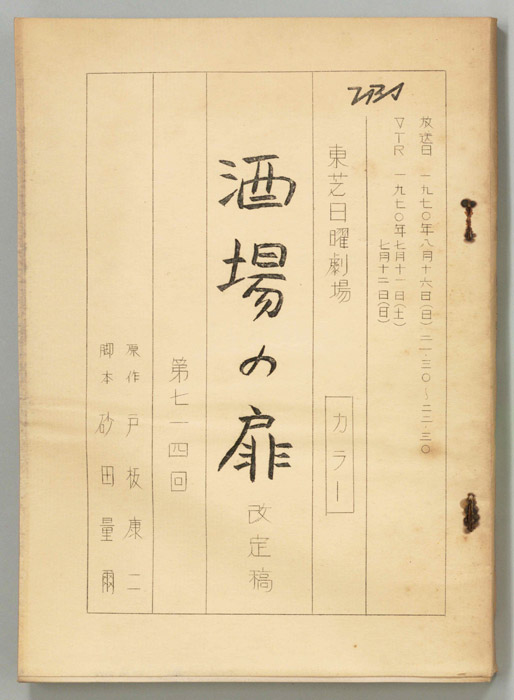 TBS
放送日 一九七〇年八月十六日(日)二一・三〇~二二・三〇
VTR 一九七〇年七月十一日(土)
七月十二日(日)
東芝日曜劇場
カラー
酒場の扉 改定稿
第七一四回
原作 戸板康二
脚本 砂田量爾